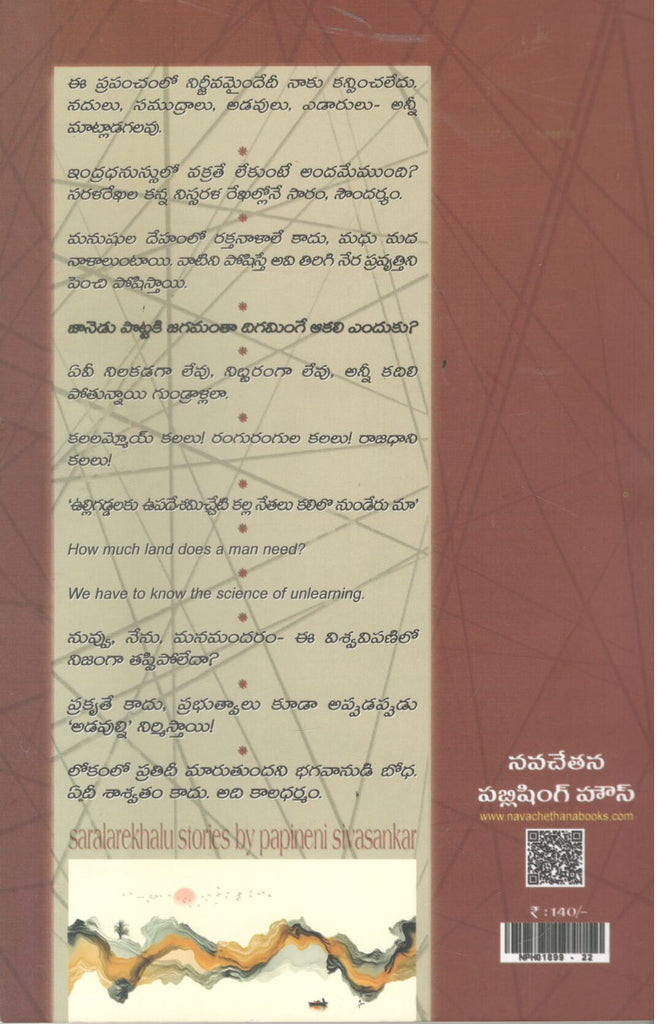 ఈ ప్రపంచంలో నిర్జీవమైందేదీ నాకు కన్పించలేదు.
నదులు, సముద్రాలు, అడవులు, ఎడారులు- అన్నీ
మాట్లాడగలవు.
*
ఇంద్రధనుస్సులో వక్రతే లేకుంటే అందమేముంది?
సరళరేఖల కన్న నిస్సరళ రేఖల్లోనే సారం, సౌందర్యం.
*
మనుషుల దేహంలో రక్తనాళాలే కాదు, మధు మద
నాళాలుంటాయి. వాటిని పోషిస్తే అవి తిరిగి నేర ప్రవృత్తిని
పెంచి పోషిస్తాయి.
*
జానెడు పొట్టకి జగమంతా దిగమింగే ఆకలి ఎందుకు?
*
ఏవీ నిలకడగా లేవు, నిబ్బరంగా లేవు, అన్నీ కదిలి
పోతున్నాయి గుండ్రాళ్లలా.
*
కలలమ్మోయ్ కలలు! రంగురంగుల కలలు! రాజధాని
కలలు!
*
'ఉల్లిగడ్డలకు ఉపదేశమిచ్చేటి కల్ల నేతలు కలిలొ నుండేరు మా'
*
How much land does a man need?
*
We have to know the science of unlearning.
*
నువ్వు, నేను, మనమందరం- ఈ విశ్వవిపణిలో
నిజంగా తప్పిపోలేదా?
*
ప్రకృతే కాదు, ప్రభుత్వాలు కూడా అప్పుడప్పుడు
'అడవుల్ని' నిర్మిస్తాయి!
*
లోకంలో ప్రతిదీ మారుతుందని భగవానుడి బోధ.
ఏదీ శాశ్వతం కాదు. అది కాలధర్మం.
saralarekhalu stories by papineni sivasankar
నవచేతన
పబ్లిషింగ్ హౌస్
www.navachethanabooks.com
₹ : 140/-
NPH01899 - 22